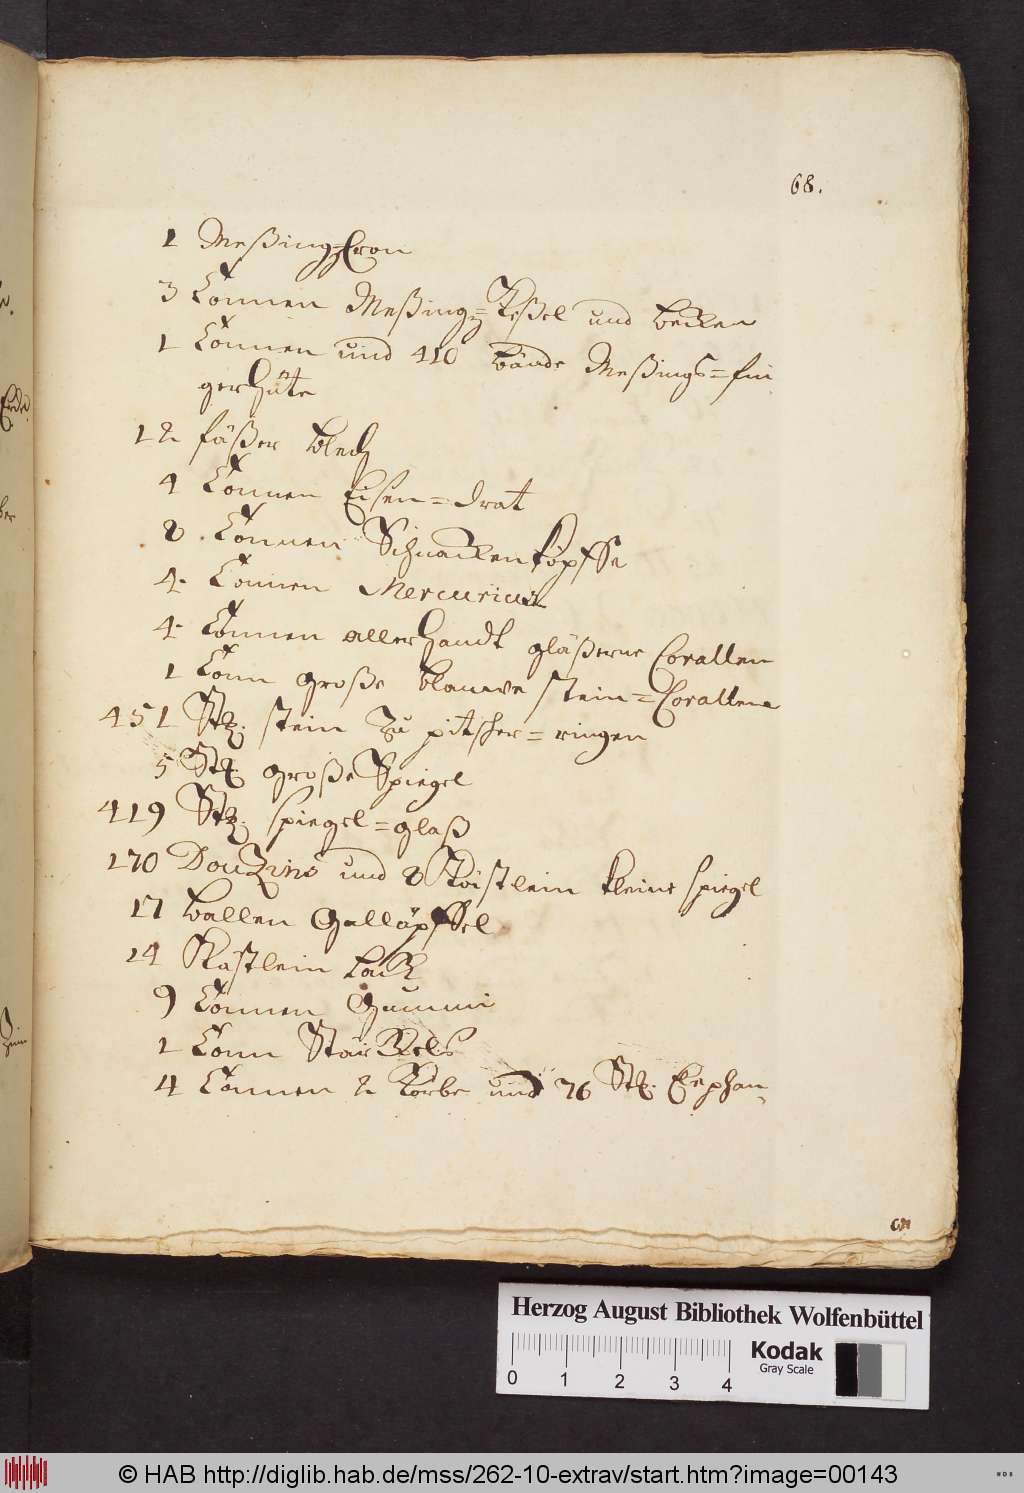 68.
1 Meßing=Cron
3 Tonnen Meßing=Keßel und becken
1 Tonnen und 410 bände Meßings=fin
gerhüte
12 fäßer blech
4 Tonnen Eisen=drat
8 Tonnen Schnackenköpffe
4. Tonnen Mercurium
4. Tonnen allerhandt gläßerne Corallen
1 Tonn große blauwe stein=Corallen
451 Stk. stein zu pitscher=ringen
5 Stk. große Spiegel
419 Stk. spiegel=glaß
170 Douzins und 8 Kästlein kleine spiegel
17 ballen Galläpffel
14 Kästlein lack
9 Tonnen Gummi
1 Tonn Stärckels
4 Tonnen 2 Körbe und 76 Stk. Elephan-
Herzog August Bibliothek Wolfenbüttel
0 1 2 3 4
Kodak
Gray Scale
© HAB http://diglib.hab.de/mss/262-10-extrav/start.htm?image=00143